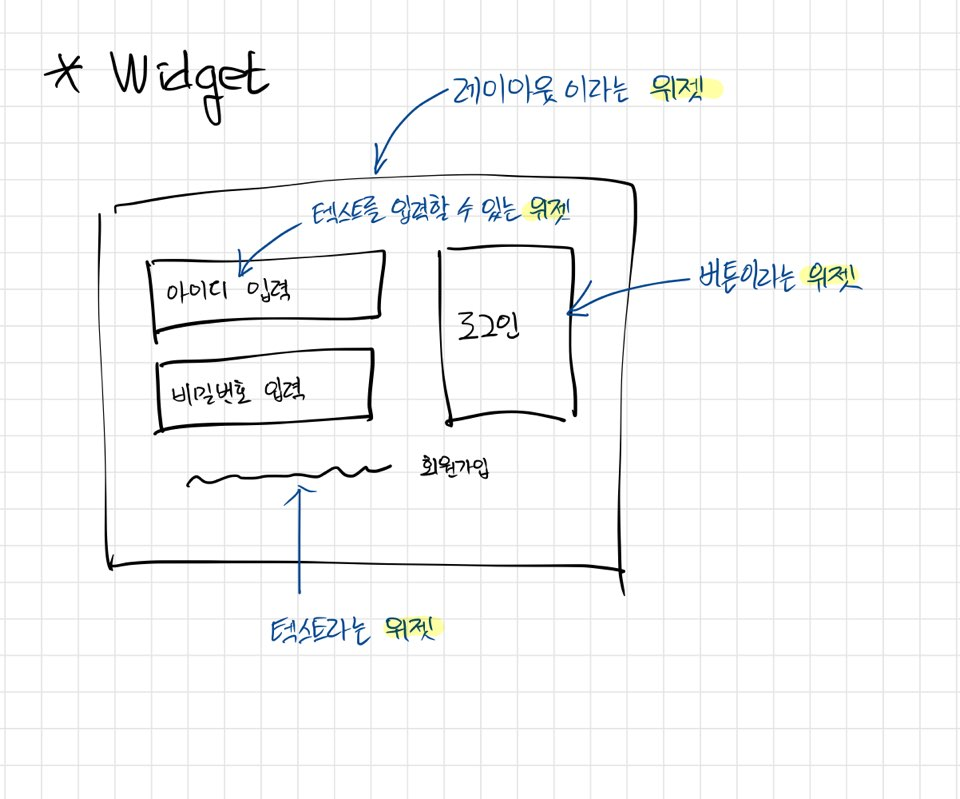 * Widget
레이아웃 이라는 위젯
텍스트를 입력할 수 있는 위젯
아이디 입력
버튼이라는 위젯
로그인
비밀번호 입력
회원가입
텍스트라는 위젯